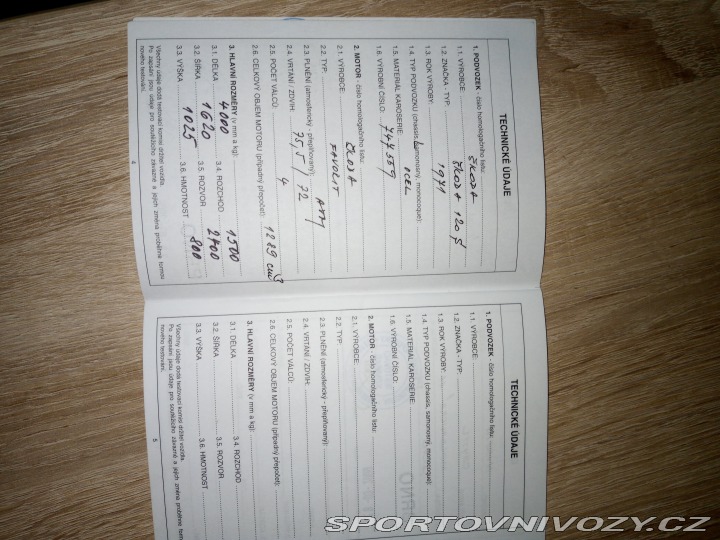 TECHNICKÉ ÚDAJE
1. PODVOZEK - číslo homologačního listu:
1.1. VÝROBCE: ŠKODA
1.2. ZNAČKA - TYP: ŠKODA 120 S
1.3. ROK VÝROBY: 1971
1.4. TYP PODVOZKU (chassis, samonosný, monocoque):
1.5. MATERIÁL KAROSERIE: OCEL
1.6. VÝROBNÍ ČÍSLO: 747559
2. MOTOR - číslo homologačního listu:
2.1. VÝROBCE: ŠKODA
2.2. TYP: FAVORIT
2.3. PLNĚNÍ (atmosferický - přeplňovaný): ATM
2.4. VRTÁNÍ / ZDVIH: 75,5 / 72
2.5. POČET VÁLCŮ: 4
2.6. CELKOVÝ OBJEM MOTORU (případný přepočet): 1289 cm3
3. HLAVNÍ ROZMĚRY (v mm a kg):
3.1. DÉLKA 4000 3.4. ROZCHOD 1500
3.2. ŠÍŘKA 1620 3.5. ROZVOR 2400
3.3. VÝŠKA 1025 3.6. HMOTNOST 800
Všechny údaje dodá testovací komisi držitel vozidla.
Po zapsání jsou údaje pro soutěžícího závazné a jejich změna proběhne formou
nového testování.
4
TECHNICKÉ ÚDAJE
1. PODVOZEK - číslo homologačního listu:
1.1. VÝROBCE:
1.2. ZNAČKA - TYP:
1.3. ROK VÝROBY:
1.4. TYP PODVOZKU (chassis, samonosný, monocoque):
1.5. MATERIÁL KAROSERIE:
1.6. VÝROBNÍ ČÍSLO:
2. MOTOR - číslo homologačního listu:
2.1. VÝROBCE:
2.2. TYP:
2.3. PLNĚNÍ (atmosferický - přeplňovaný):
2.4. VRTÁNÍ / ZDVIH:
2.5. POČET VÁLCŮ:
2.6. CELKOVÝ OBJEM MOTORU (případný přepočet):
3. HLAVNÍ ROZMĚRY (v mm a kg):
3.1. DÉLKA 3.4. ROZCHOD
3.2. ŠÍŘKA 3.5. ROZVOR
3.3. VÝŠKA 3.6. HMOTNOST
Všechny údaje dodá testovací komisi držitel vozidla.
Po zapsání jsou údaje pro soutěžícího závazné a jejich změna proběhne formou
nového testování.
5
SPORTOVNIVOZY.CZ